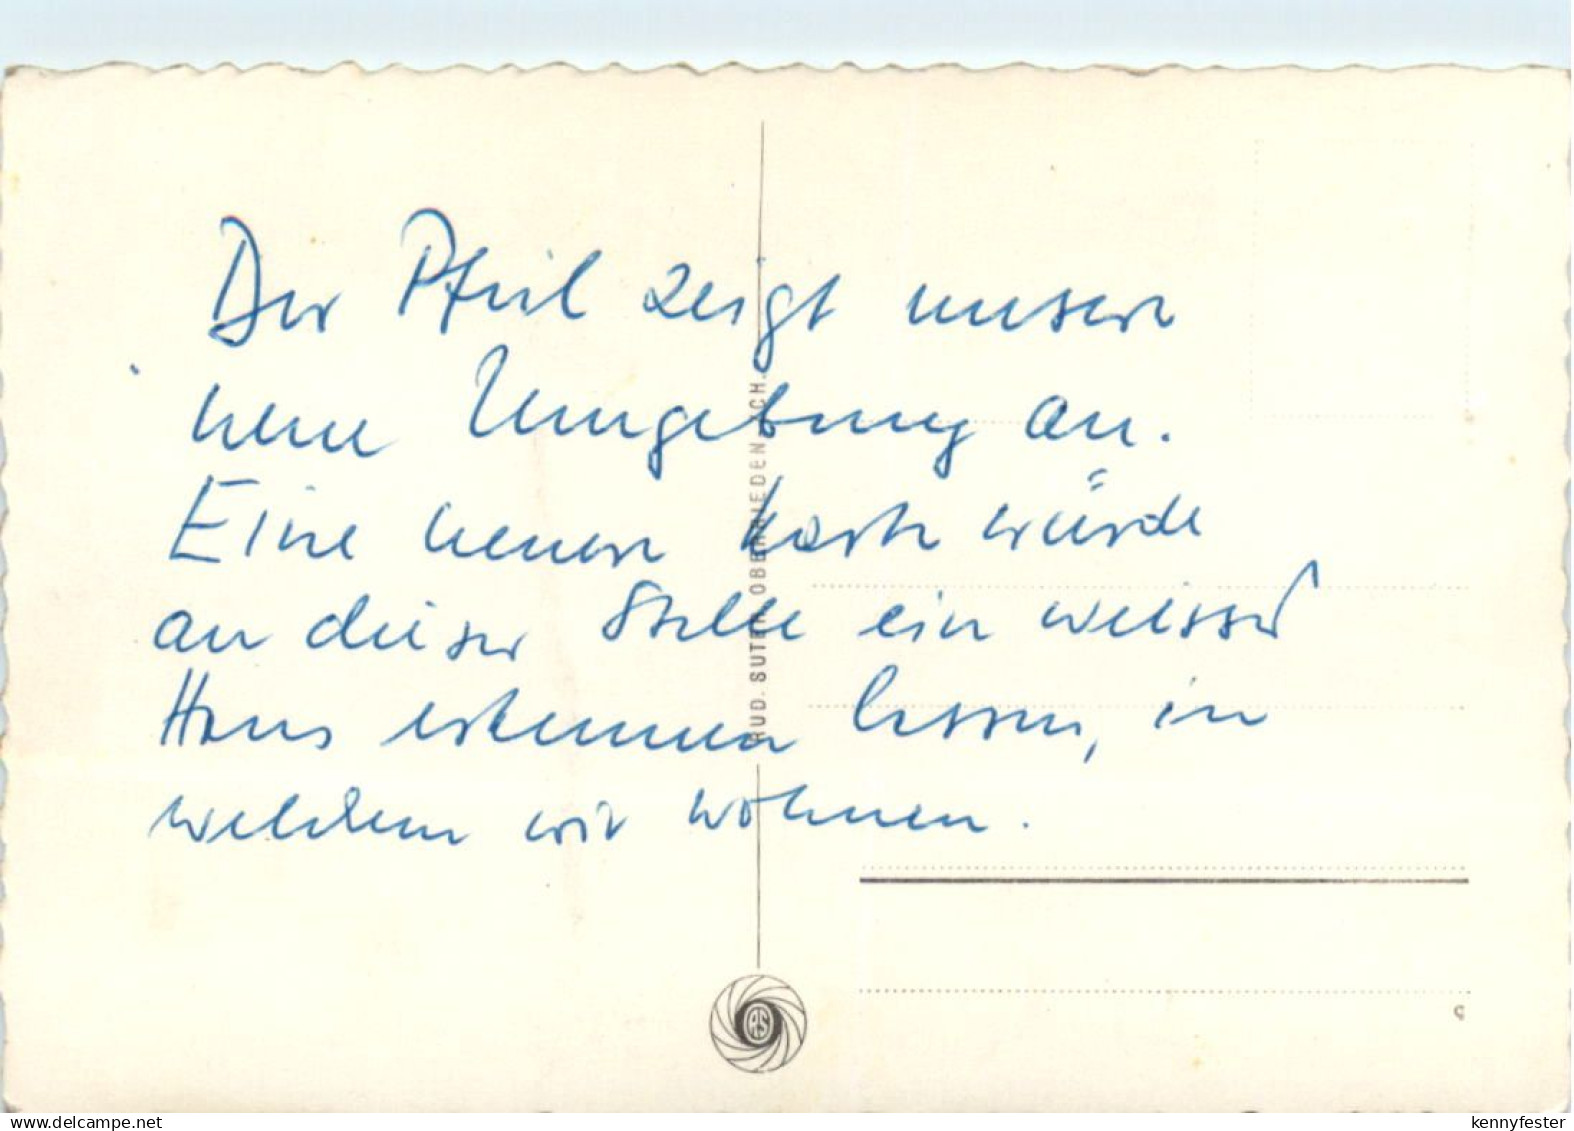 Der Pfeil zeigt unsere
neue Umgebung an.
Eine neuere Karte würde
an dieser Stelle ein weisses
Haus erkennen lassen, in
welchem wir wohnen.
RUD. SUTER, OBERRIEDEN-ZCH.
RS
kennyfester